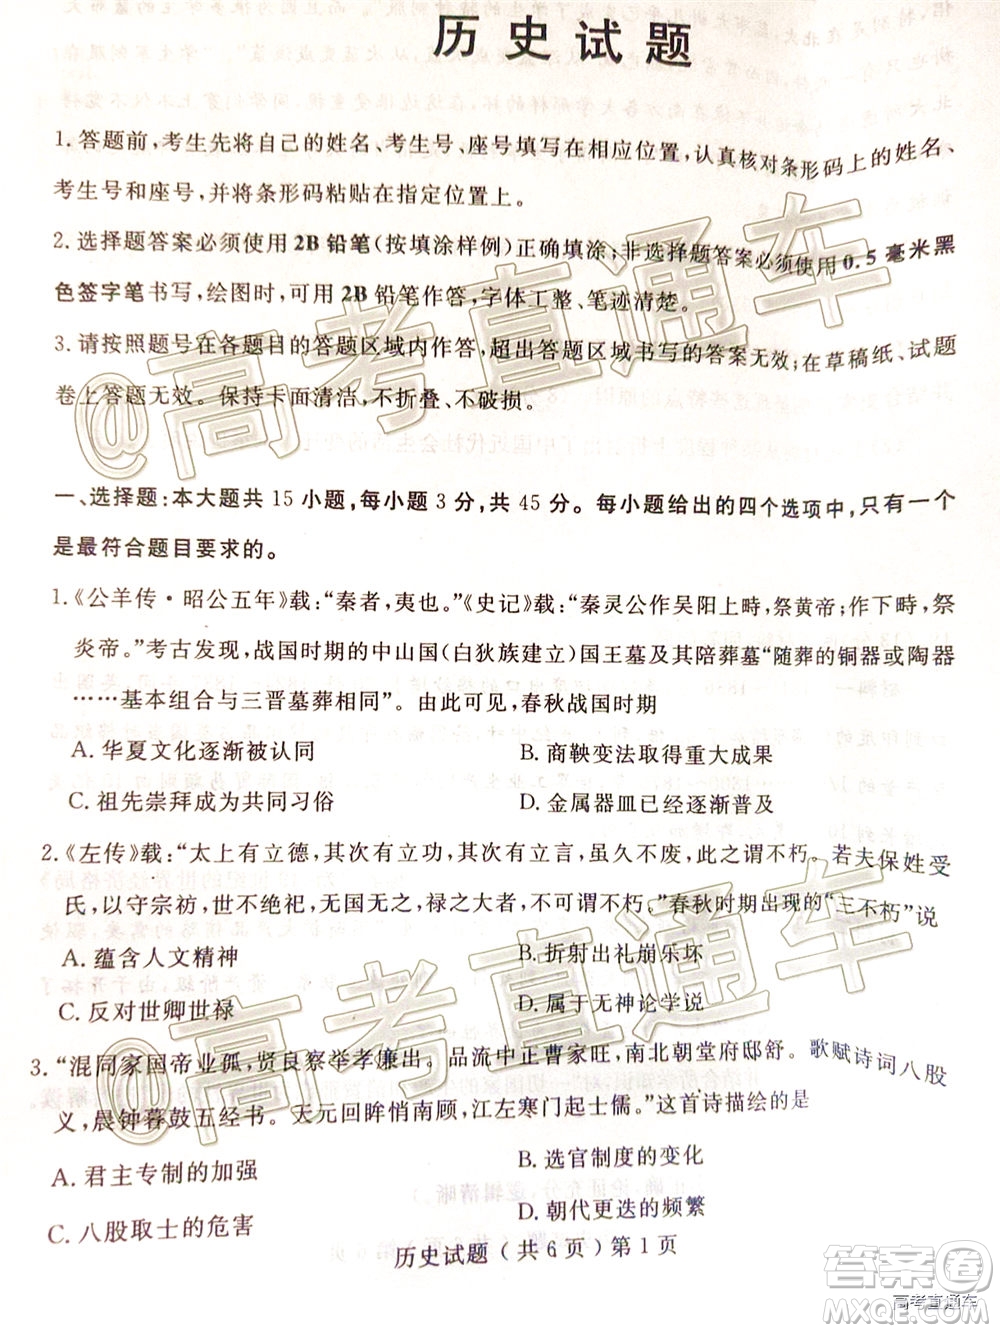 历史试题
1. 答题前,考生先将自己的姓名、考生号、座号填写在相应位置,认真核对条形码上的姓名、
考生号和座号,并将条形码粘贴在指定位置上。
2. 选择题答案必须使用 2B 铅笔(按填涂样例)正确填涂;非选择题答案必须使用 0.5 毫米黑
色签字笔书写,绘图时,可用 2B 铅笔作答,字体工整、笔迹清楚。
3. 请按照题号在各题目的答题区域内作答,超出答题区域书写的答案无效;在草稿纸、试题
卷上答题无效。保持卡面清洁,不折叠、不破损。
一、选择题:本大题共 15 小题,每小题 3 分,共 45 分。每小题给出的四个选项中,只有一个
是最符合题目要求的。
1.《公羊传·昭公五年》载:“秦者,夷也。”《史记》载:“秦灵公作吴阳上畤,祭黄帝;作下畤,祭
炎帝。”考古发现,战国时期的中山国(白狄族建立)国王墓及其陪葬墓“随葬的铜器或陶器
……基本组合与三晋墓葬相同”。由此可见,春秋战国时期
A. 华夏文化逐渐被认同
B. 商鞅变法取得重大成果
C. 祖先崇拜成为共同习俗
D. 金属器皿已经逐渐普及
2.《左传》载:“太上有立德,其次有立功,其次有立言,虽久不废,此之谓不朽。若夫保姓受
氏,以守宗祊,世不绝祀,无国无之,禄之大者,不可谓不朽。”春秋时期出现的“三不朽”说
A. 蕴含人文精神
B. 折射出礼崩乐坏
C. 反对世卿世禄
D. 属于无神论学说
3.“混同家国帝业孤,贤良察举孝廉出。品流中正曹家旺,南北朝堂府邸舒。歌赋诗词八股
义,晨钟暮鼓五经书。天元回眸悄南顾,江左寒门起士儒。”这首诗描绘的是
A. 君主专制的加强
B. 选官制度的变化
C. 八股取士的危害
D. 朝代更迭的频繁
历史试题(共 6 页)第 1 页
@高考直通车
@高考直通车
答案圈
高考直通车
MXQE.COM